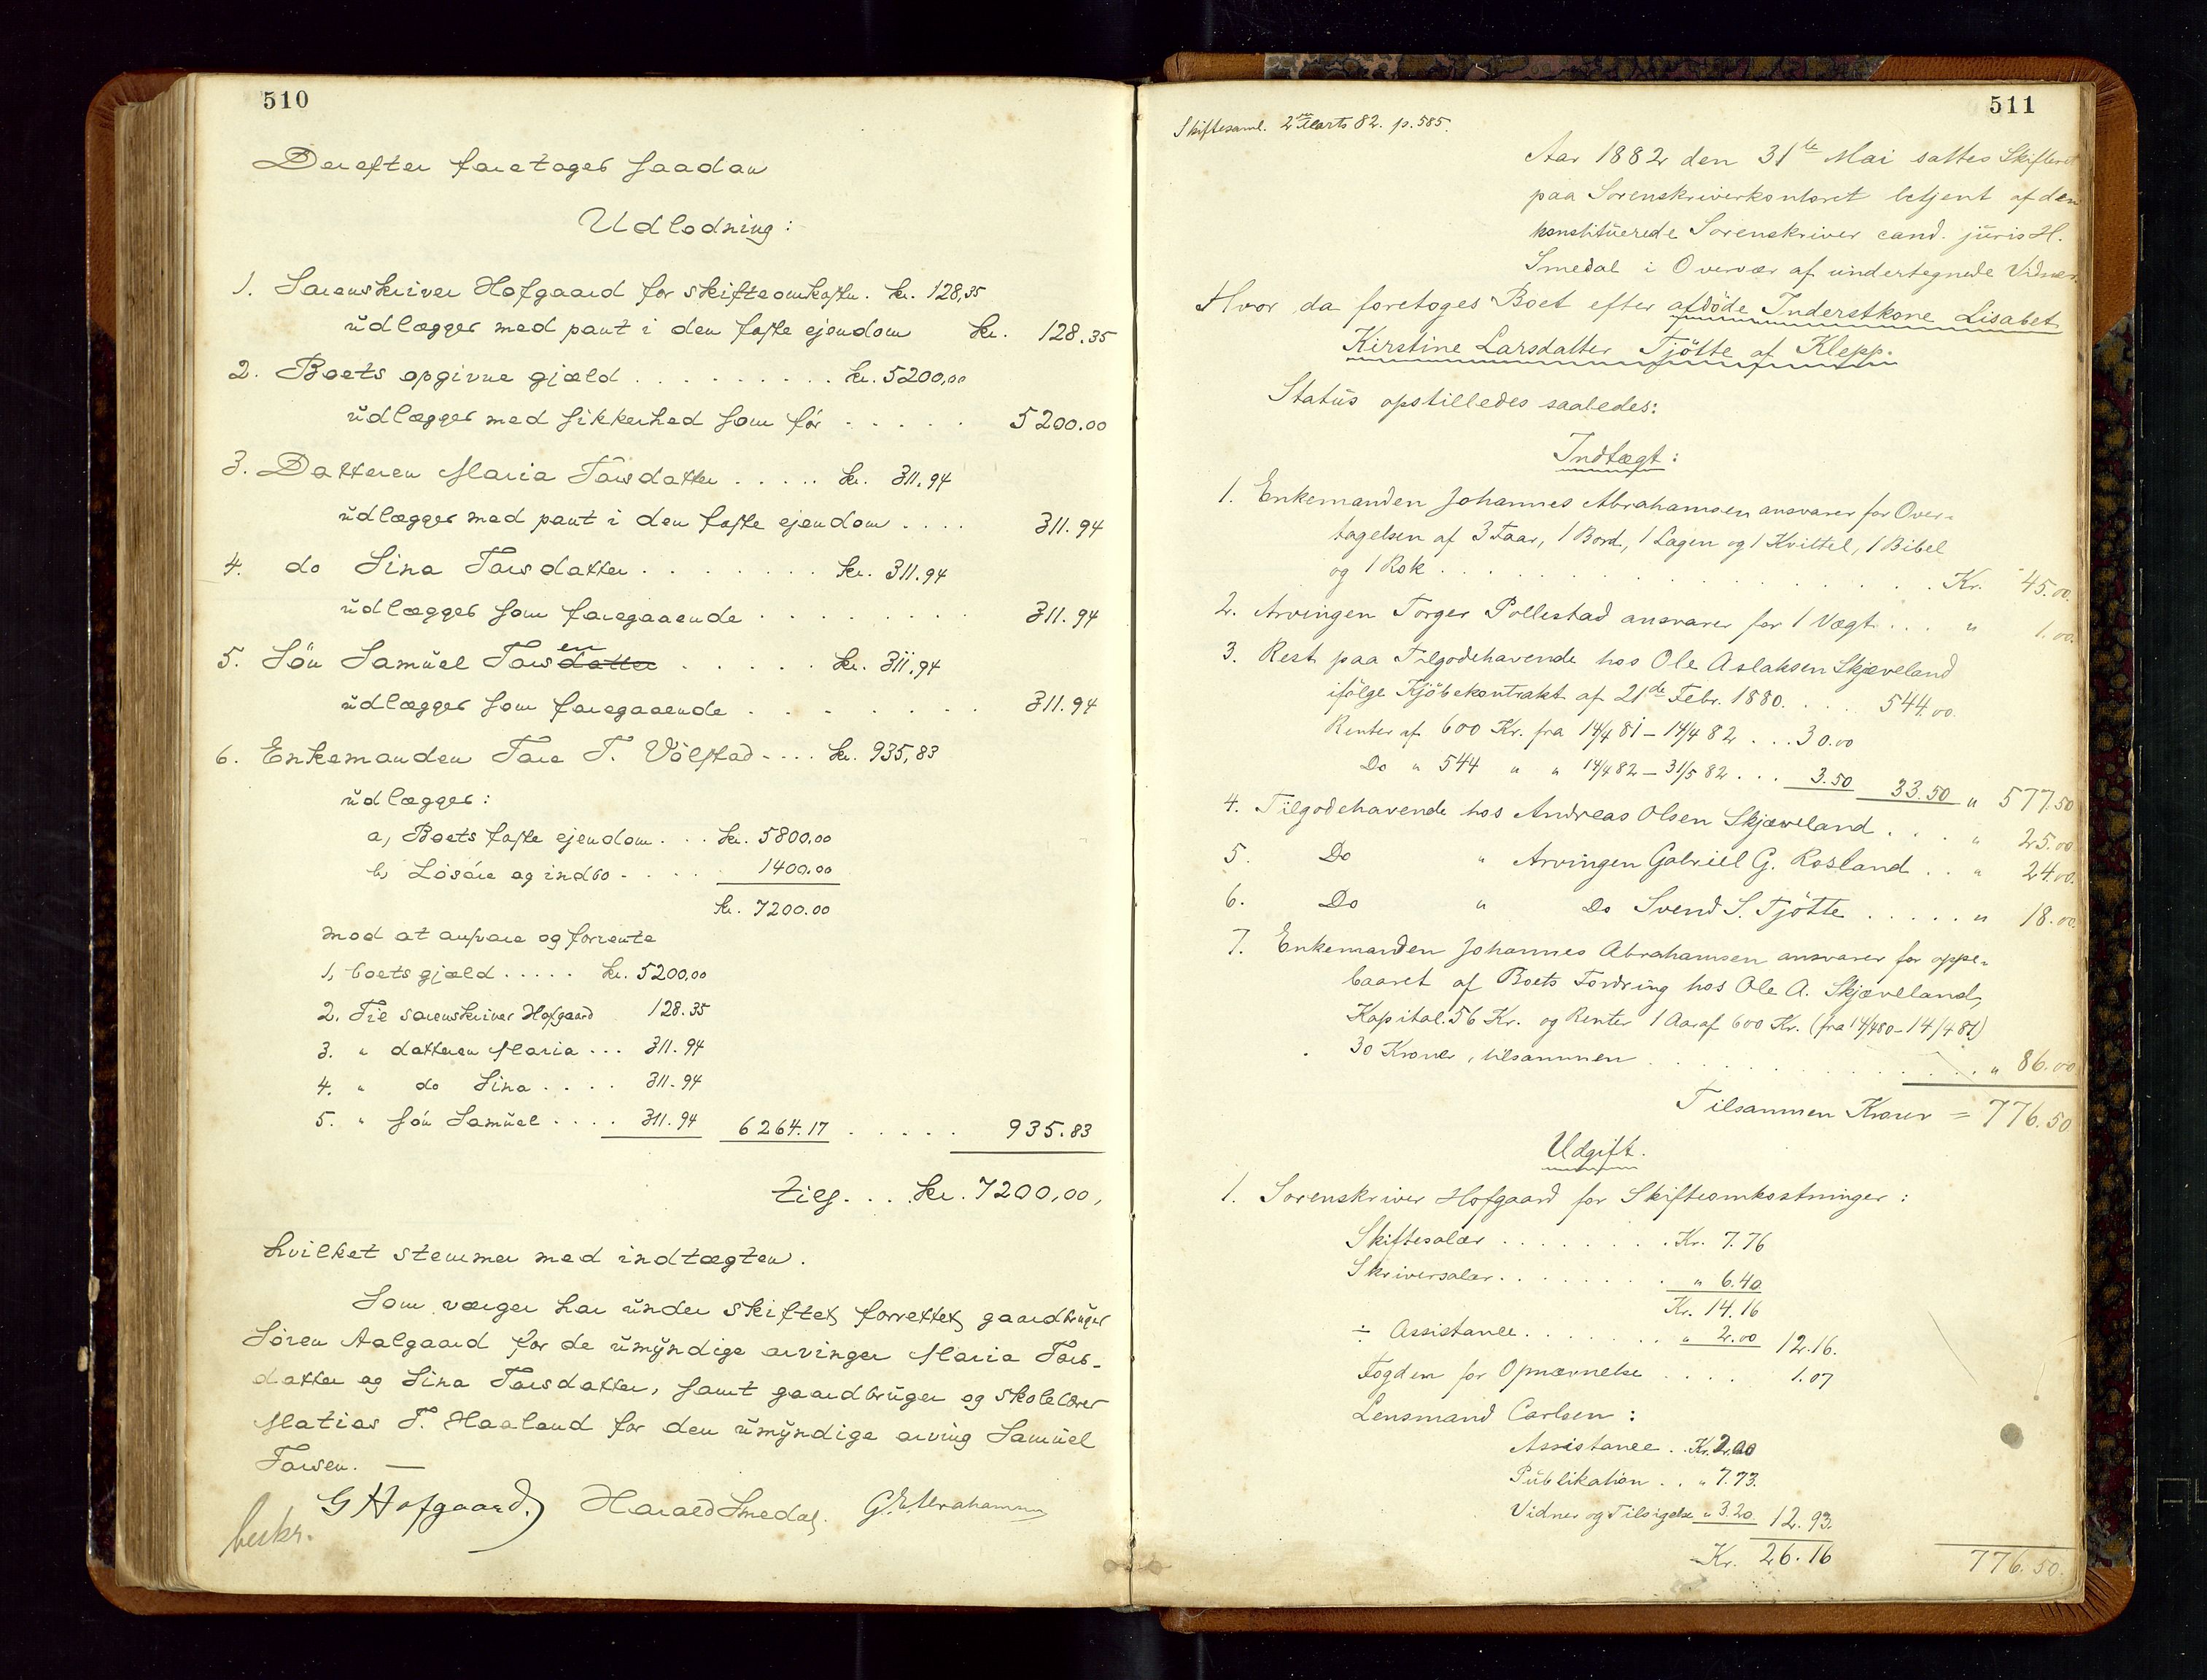 510
Derefter foretoges saadan
Udlodning:
1. Sorenskriver Hofgaard for skifteomkostn. kr. 128,35
udlægges med pant i den faste ejendom kr. 128.35
2. Boets opgivne gjæld . . . . . . . . . kr. 5200,00
udlægges med sikkerhed som før . . . . . 5200.00
3. Datteren Maria Torsdatter . . . . . kr. 311.94
udlægges med pant i den faste ejendom . . . . 311.94
4. do Sina Torsdatter . . . . . . . kr. 311.94
udlægges som foregaaende . . . . . . . . 311.94
5. Søn Samuel Torsdatter en . . . . . kr. 311.94
udlægges som foregaaende . . . . . . . . 311.94
6. Enkemanden Tore T. Vølstad . . . . kr. 935,83
udlægges:
a, Boets faste ejendom . . . kr. 5800.00
b, Løsøre og indbo . . . . . 1400.00
kr. 7200.00
mod at ansvare og forrente
1, boets gjæld . . . . . kr. 5200,00
2. Til sorenskriver Hofgaard 128.35
3. " datteren Maria . . . 311.94
4. " do Sina . . . . 311.94
5. " søn Samuel . . . . 311.94 6264.17 . . . . . 935.83
Tils. . . . kr. 7200,00,
hvilket stemmer med indtægten.
Som værger har under skiftet forrettet gaardbruger
Søren Aalgaard for de umyndige arvinger Maria Tors-
datter og Sina Torsdatter, samt gaardbruger og skolelærer
Matias T. Haaland for den umyndige arving Samuel
Torsen. —
G Hofgaard. Harald Smedal. G.E. Abrahamsen
beskr.
511
Skiftesaml. 2den Marts 82. p. 585.
Aar 1882 den 31te Mai sattes Skifteret
paa Sorenskriverkontoret betjent af den
konstituerede Sorenskriver cand. juris H.
Smedal i Overvær af undertegnede Vidner.
Hvor da foretoges Boet efter afdöde Inderstkone Lisabet
Kirstine Larsdatter Tjötte af Klepp.
Status opstilledes saaledes:
Indtægt:
1. Enkemanden Johannes Abrahamsen ansvarer for Over-
tagelsen af 3 Faar, 1 Bord, 1 Lagen og 1 Kvittel, 1 Bibel
og 1 Rok . . . . . . . . . . . . Kr. 45.00.
2. Arvingen Torger Pollestad ansvarer for 1 Vægt . . . " 1.00.
3. Rest paa Tilgodehavende hos Ole Aslaksen Skjæveland
ifölge Kjöbekontrakt af 21de Febr. 1880. . . . 544.00.
Renter af 600 Kr. fra 14/4 81 – 14/4 82 . . . 30.00
Do " 544 " " 14/4 82 – 31/5 82 . . . 3.50 33.50 " 577.50
4. Tilgodehavende hos Andreas Olsen Skjæveland . . . " 25.00.
5. Do " Arvingen Gabriel G. Rosland . . " 24.00.
6. Do " Do Svend S. Tjötte . . . . . " 18.00.
7. Enkemanden Johannes Abrahamsen ansvarer for oppe-
baaret af Boets Fordring hos Ole A. Skjæveland,
Kapital. 56 Kr. og Renter 1 Aar af 600 Kr. (fra 14/4 80 – 14/4 81)
30 Kroner, tilsammen . . . . . . . . . . . " 86.00
Tilsammen Kroner = 776.50
Udgift.
1. Sorenskriver Hofgaard for Skifteomkostninger:
Skiftesalær . . . . . . . . Kr. 7.76
Skriversalær . . . . . . . . " 6.40.
Kr. 14.16
÷ Assistance . . . . . . . " 2.00 12.16.
Fogden for Opnævnelse . . . . 1.07
Lensmand Carlsen:
Assistance . . Kr. 2.00
Publikation . . " 7.73.
Vidner og Tilsigelse " 3.20. 12.93.
Kr. 26.16 776.50.